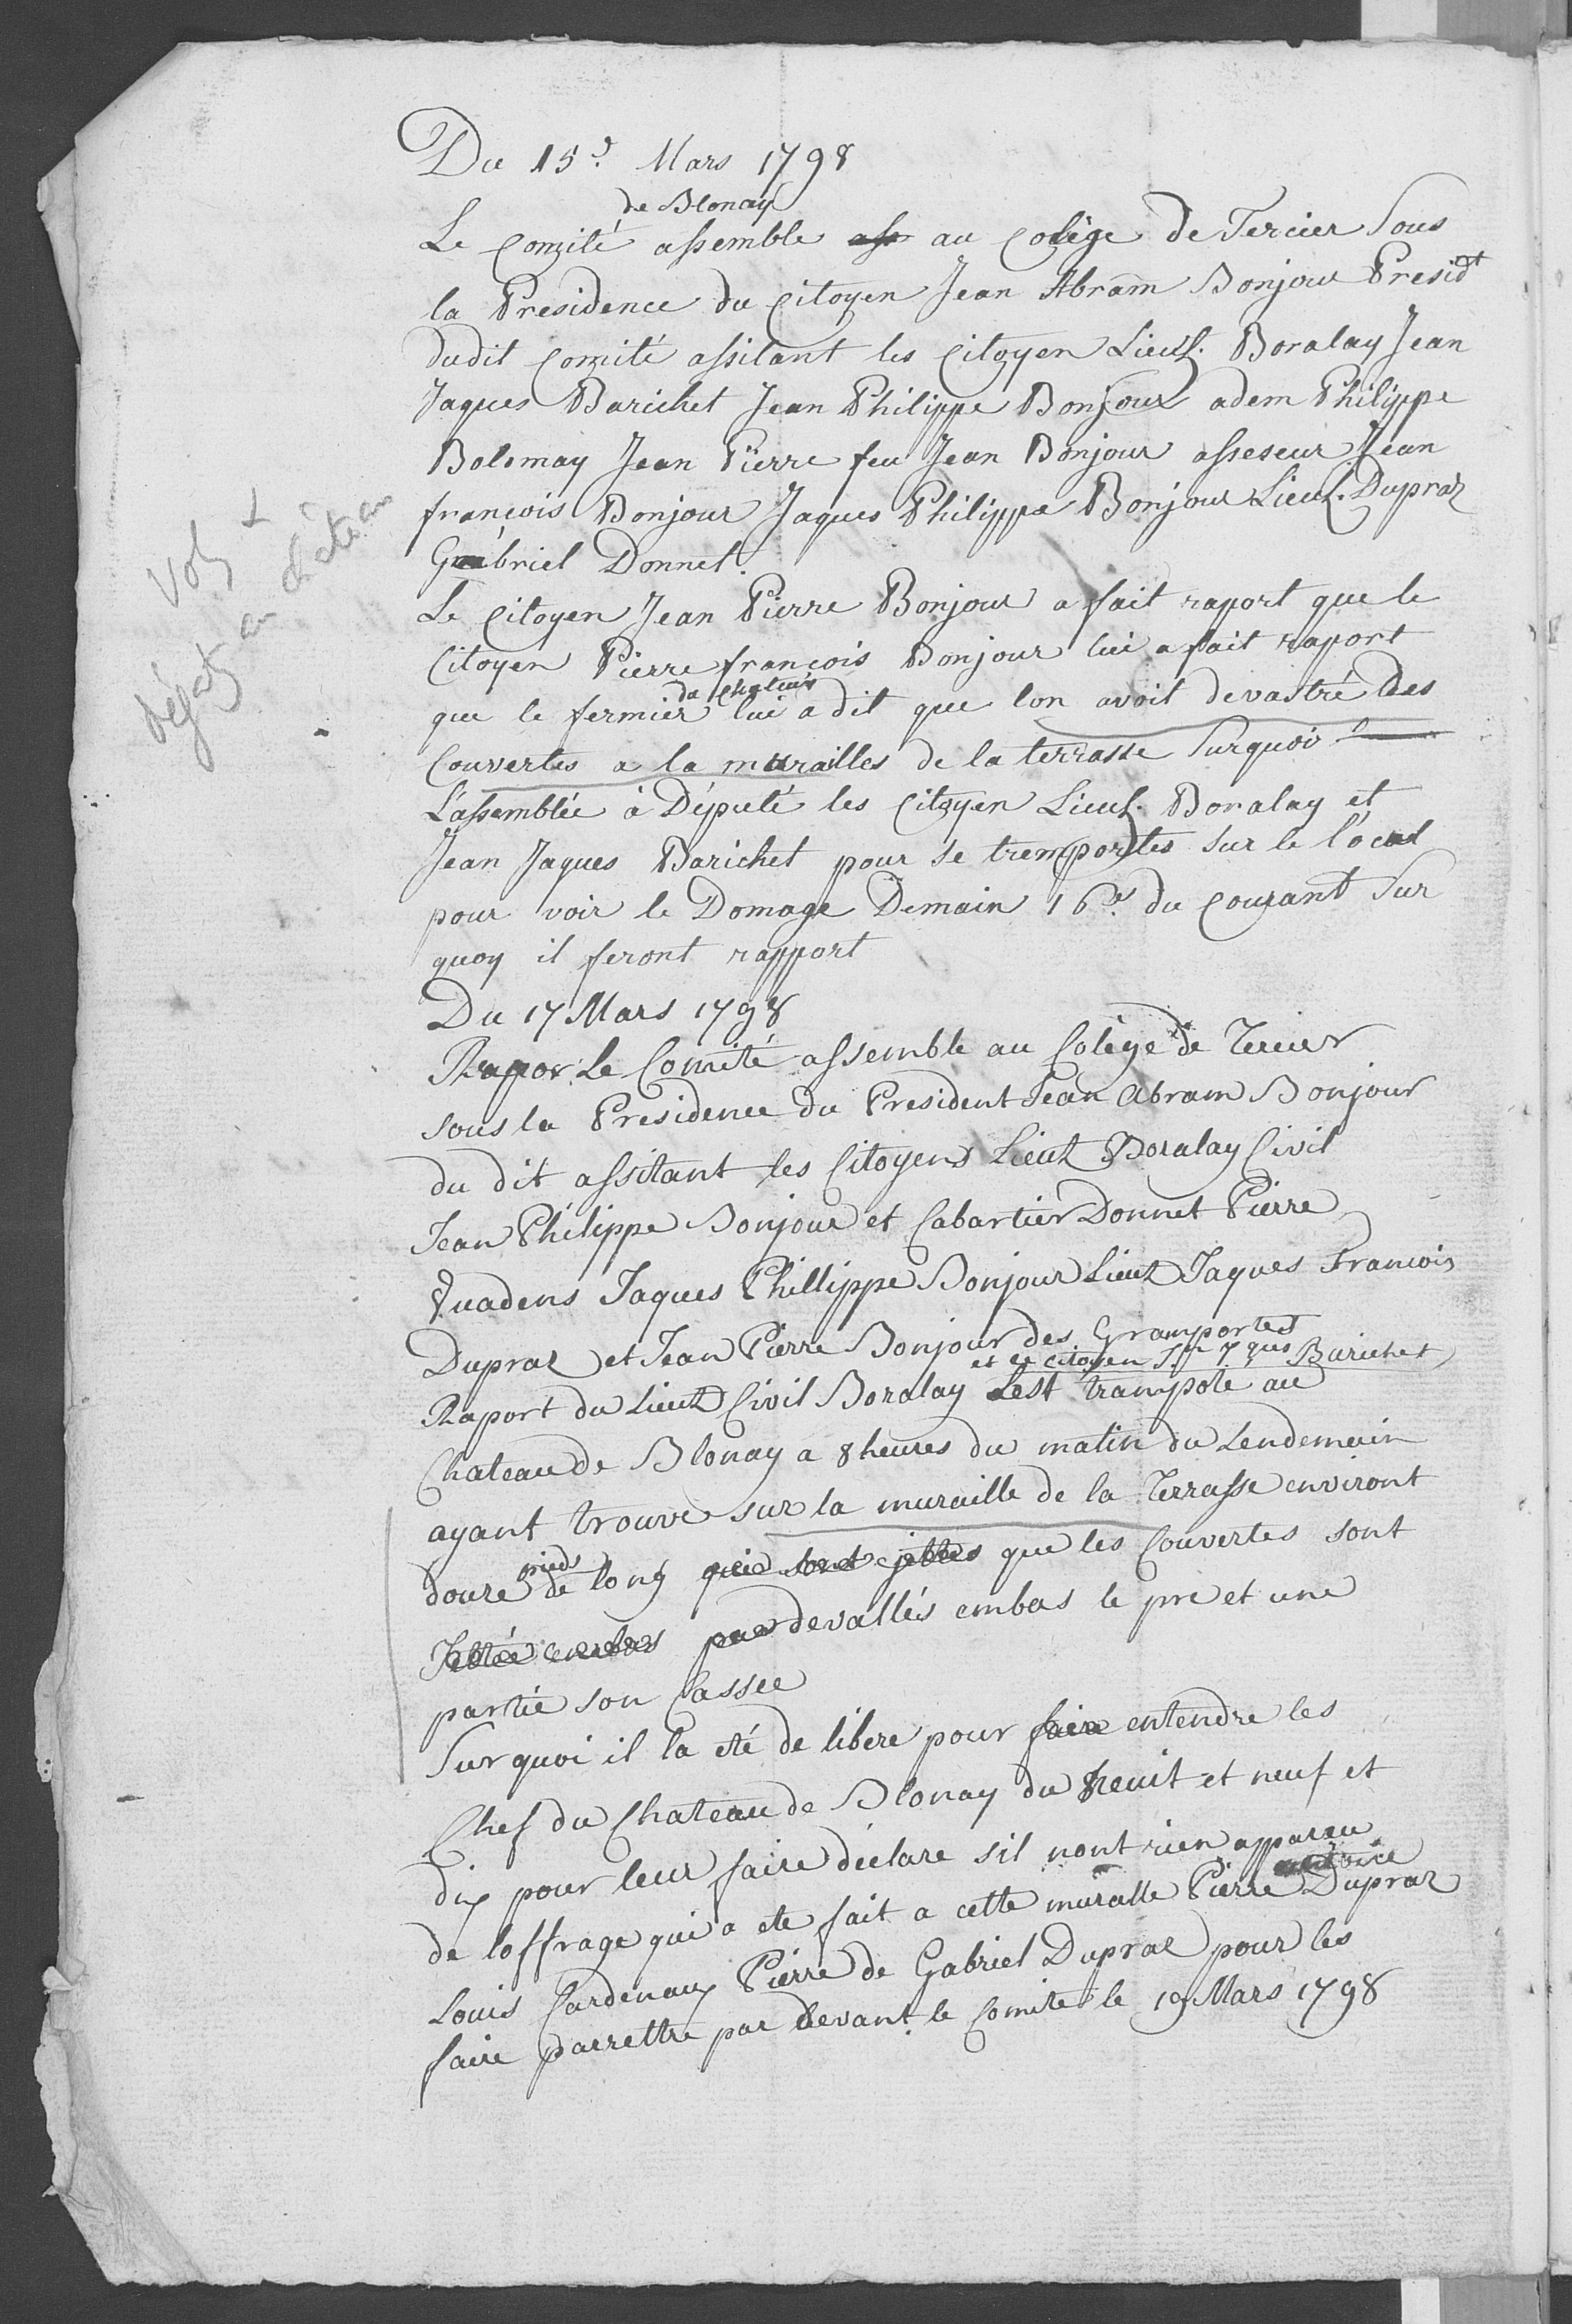 Du 15.e Mars 1798
de Blonay
Le Comité assemble ass au Colége de Tercier Sous
la Presidence du Citoyen Jean Abram Bonjour Presidt
dudit Comité assitant les Citoyen Lieut. Boralay Jean
Jaques Barichet Jean Philippe Bonjour adem Philippe
Bolomay Jean Pierre feu Jean Bonjour asseseur Jean
françois Bonjour Jaques Philippe Bonjour Lieut. Dupraz
Gabriel Donnet.
Vols +
dégats au château
Le Citoyen Jean Pierre Bonjour a fait raport que le
Citoyen Pierre françois Bonjour lui a fait raport
du Chateau
que le fermier lui a dit que lon avoit devastré des
Couvertes a la murailles de la terrasse Surquoi
L'assemblée à Députté les Citoyen Lieut. Boralay et
Jean Jaques Barichet pour se tremportes sur le local
pour voir le Domage Demain 16.e du Courant Sur
quoy il feront rapport
Du 17 Mars 1798
Rapor Le Comité assemble au Colège de Tercier
sous la Presidence du President Jean Abram Bonjour
du dit assitant les Citoyens Lieut Boralay Civil
Jean Philippe Bonjour et Cabartier Donnet Pierre
Quadens Jaques Phillippe Bonjour Lieut Jaques Francois
Dupraz et Jean Pierre Bonjour des Gramportes
et le citoyen Jn Jques Barichet
Raport du Lieut Civil Boralay Lest trampote au
Chateau de Blonay a 8 heures du matin du Lendemain
ayant trouvé sur la muraille de la Terrasse environt
pieds
douze de long qui sont jettes que les Couvertes sont
Jettée embas par devallés embas le pre et une
partie son Cassee
Sur quoi il la eté de libere pour faire entendre les
Chef du Chateau de Blonay du heuit et neuf et
dix pour leur faire déclare sil nont rien apparcu
de loffrage qui a ete fait a cette muralle Pierre Dupraz
Louis Cardenaux Pierre de Gabriel Dupraz pour les
faire parrettre par devant le Comite le 19 Mars 1798